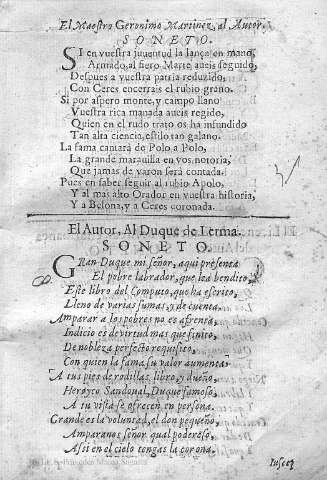 El Maestro Geronimo Martinez, al Autor.
SONETO.
SI en vuestra juventud la lança en mano,
Armado, al fiero Marte aueis seguido,
Despues a vuestra patria reduzido,
Con Ceres encerrais el rubio grano.
Si por aspero monte, y campo llano
Vuestra rica manada aueis regido,
Quien en el rudo trato os ha infundido
Tan alta ciencia, estilo tan galano.
La fama cantará de Polo a Polo,
La grande marauilla en vos notoria,
Que jamas de varon será contada.
Pues en saber seguir al rubio Apolo,
Y al mas alto Orador en vuestra historia,
Y a Belona, y a Ceres coronada.
El Autor, Al Duque de Lerma.
SONETO.
GRan Duque mi señor, aqui presenta
El pobre labrador, que sea bendito,
Este libro del Computo, que ha escrito,
Lleno de varias sumas, y de cuenta.
Amparar a los pobres no es afrenta,
Indicio es de virtud mas que finito,
De nobleza perfecto requisito,
Con quien la fama su valor aumenta.
A tus pies de rodillas libro, y dueño,
Heroyco Sandoual, Duque famoso,
A tu vista se ofrecen en persona.
Grande es la voluntad, el don pequeño,
Amparanos señor qual poderoso,
Assi en el cielo tengas la corona.